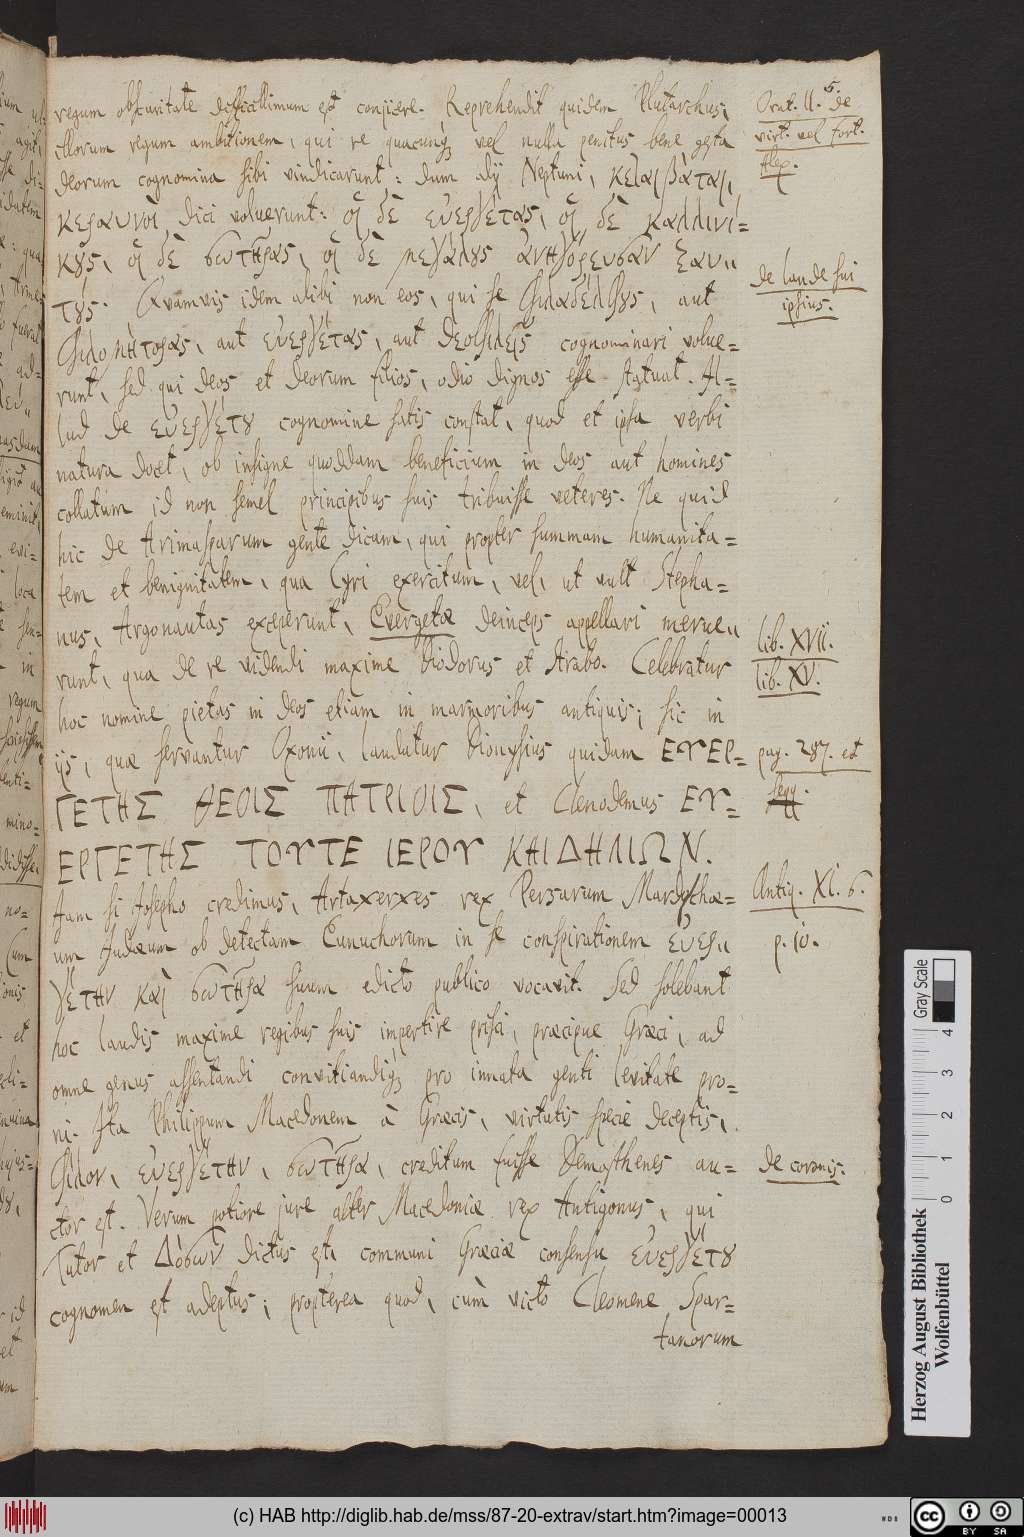 regum obscuritate difficillimum est conjicere. Reprehendit quidem Plutarchus,
illorum regum ambitionem, qui re quacunq; vel nulla penitus bene gesta
deorum cognomina sibi vindicarunt: dum alij Neptuni,
κεραυνοὶ dici voluerunt: οἱ δὲ εὐεργέτας, οἱ δὲ καλλινί=
κους, οἱ δὲ σωτῆρας, οἱ δὲ μεγάλους ἀνηγόρευσαν ἑαυ,,
τούς. Quamvis idem alibi non eos, qui se φιλαδέλφους, aut
φιλομήτορας, aut εὐεργέτας, aut θεοφιλεῖς cognominari volue=
runt, sed qui deos et deorum filios, odio dignos esse statuat. Il=
lud de εὐεργέτου cognomine satis constat, quod et ipsa verbi
natura docet, ob insigne quoddam beneficium in deos aut homines
collatum id non semel principibus suis tribuisse veteres. Ne quid
hic de Arimasparum gente dicam, qui propter summam humanita=
tem et benignitatem, qua Cyri exercitum, vel, ut vult Stepha=
nus, Argonautas exceperunt, Evergetæ deinceps appellari merue,,
runt, qua de re videndi maxime Diodorus et Strabo. Celebratur
hoc nomine pietas in deos etiam in marmoribus antiquis; sic in
ijs, quæ servantur Oxonii, laudatur Dionysius quidam ΕΥΕΡ=
ΓΕΤΗΣ ΘΕΟΙΣ ΠΑΤΡΙΟΙΣ, et Clenodemus ΕΥ=
ΕΡΓΕΤΗΣ ΤΟΥΤΕ ΙΕΡΟΥ ΚΑΙ ΔΗΛΙΩΝ.
Jam si Josepho credimus, Artaxerxes rex Persarum Mardochæ=
um Judæum ob detectam Eunuchorum in se conspirationem εὐερ,,
γέτην καὶ σωτῆρα suum edicto publico vocavit. Sed solebant
hoc laudis maxime regibus suis impertire prisci, præcipue Græci, ad
omne genus assentandi convitiandiq; pro innata genti levitate pro=
ni. Ita Philippum Macedonem à Græcis, virtutis specie deceptis,
φίλον, εὐεργέτην, σωτῆρα, creditum fuisse Demosthenes au=
ctor est. Verum potiore jure alter Macedoniæ rex Antigonus, qui
Tutor et Δώσων dictus est, communi Græciæ consensu εὐεργέτου
cognomen est adeptus; propterea quod, cùm victo Cleomene Spar=
tanorum
Orat. II. de
virt. vel fort.
Alex.
5.
de laude sui
ipsius.
lib. XVII.
lib. XV.
pag. 287. et
seqq.
Antiq. XI. 6.
p. 10.
de coronis.
Gray Scale
0 1 2 3 4
Herzog August Bibliothek
Wolfenbüttel
(c) HAB http://diglib.hab.de/mss/87-20-extrav/start.htm?image=00013
cc BY SA